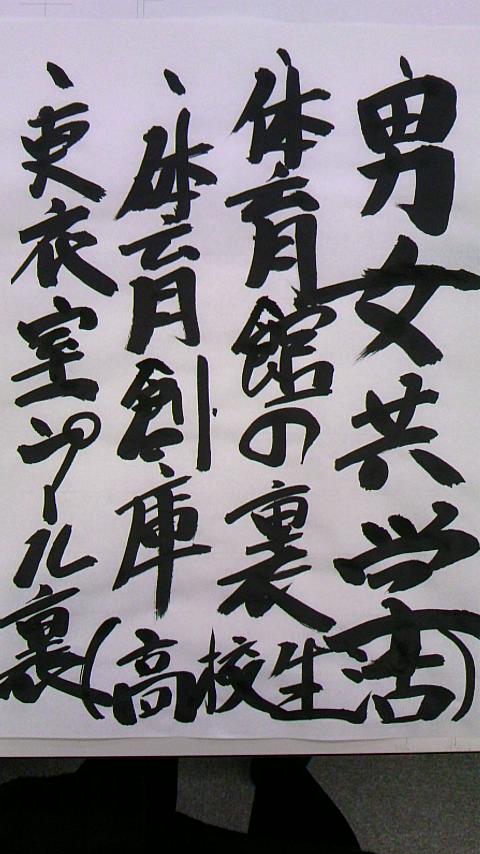 男女共学
体育館の裏
、体育創庫
、更衣室プール裏
(高校生活)